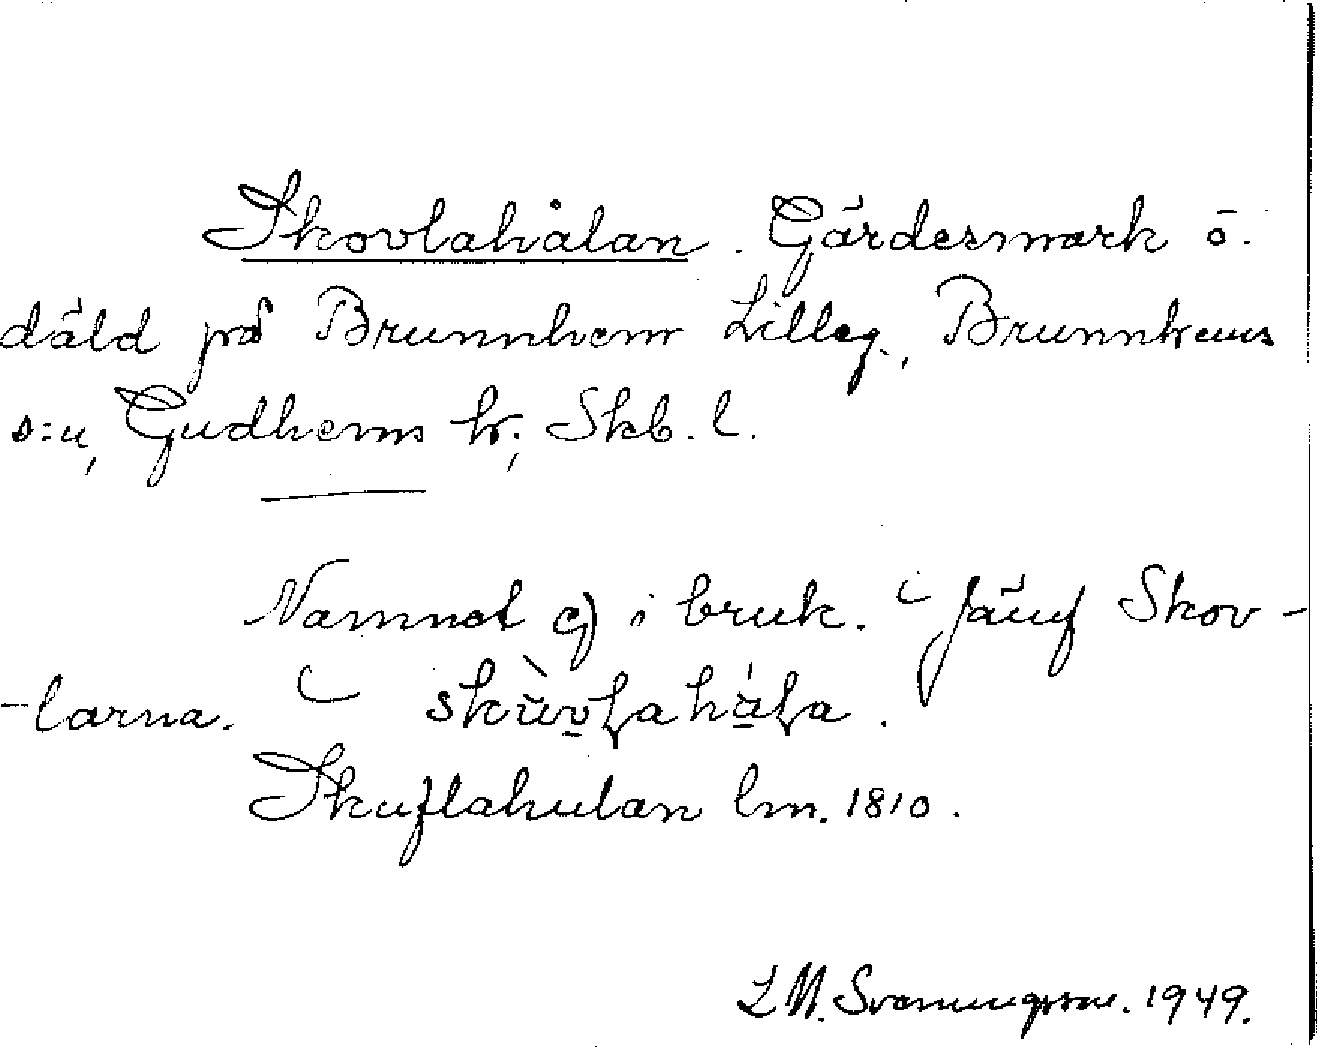 Skovlahålan. Gärdesmark ö.
däld på Brunnhem Lilleg., Brunnhems
s:n, Gudhems hr; Skb. l.
Namnet ej i bruk. Jämf Skov-
-larna. skùvlahå̀la.
Skuflahulan lm. 1810.
L M. Svenungsson. 1949.